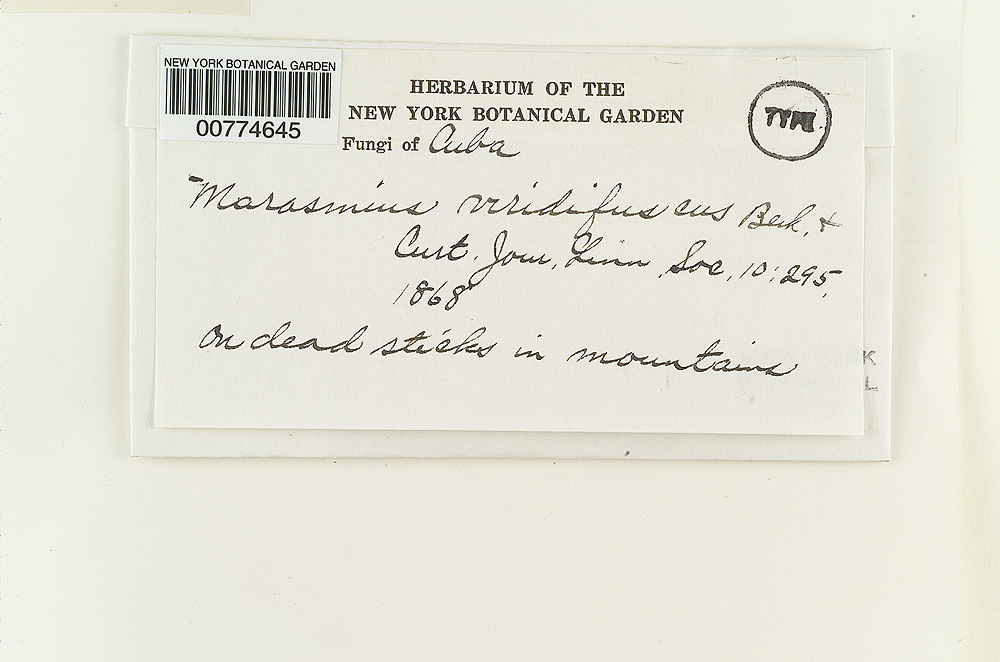 NEW YORK BOTANICAL GARDEN
00774645
HERBARIUM OF THE
NEW YORK BOTANICAL GARDEN
TYPE
Fungi of Cuba
Marasmius viridifuscus Berk. &
Curt. Jour. Linn. Soc. 10:295.
1868
On dead sticks in mountains
K
L